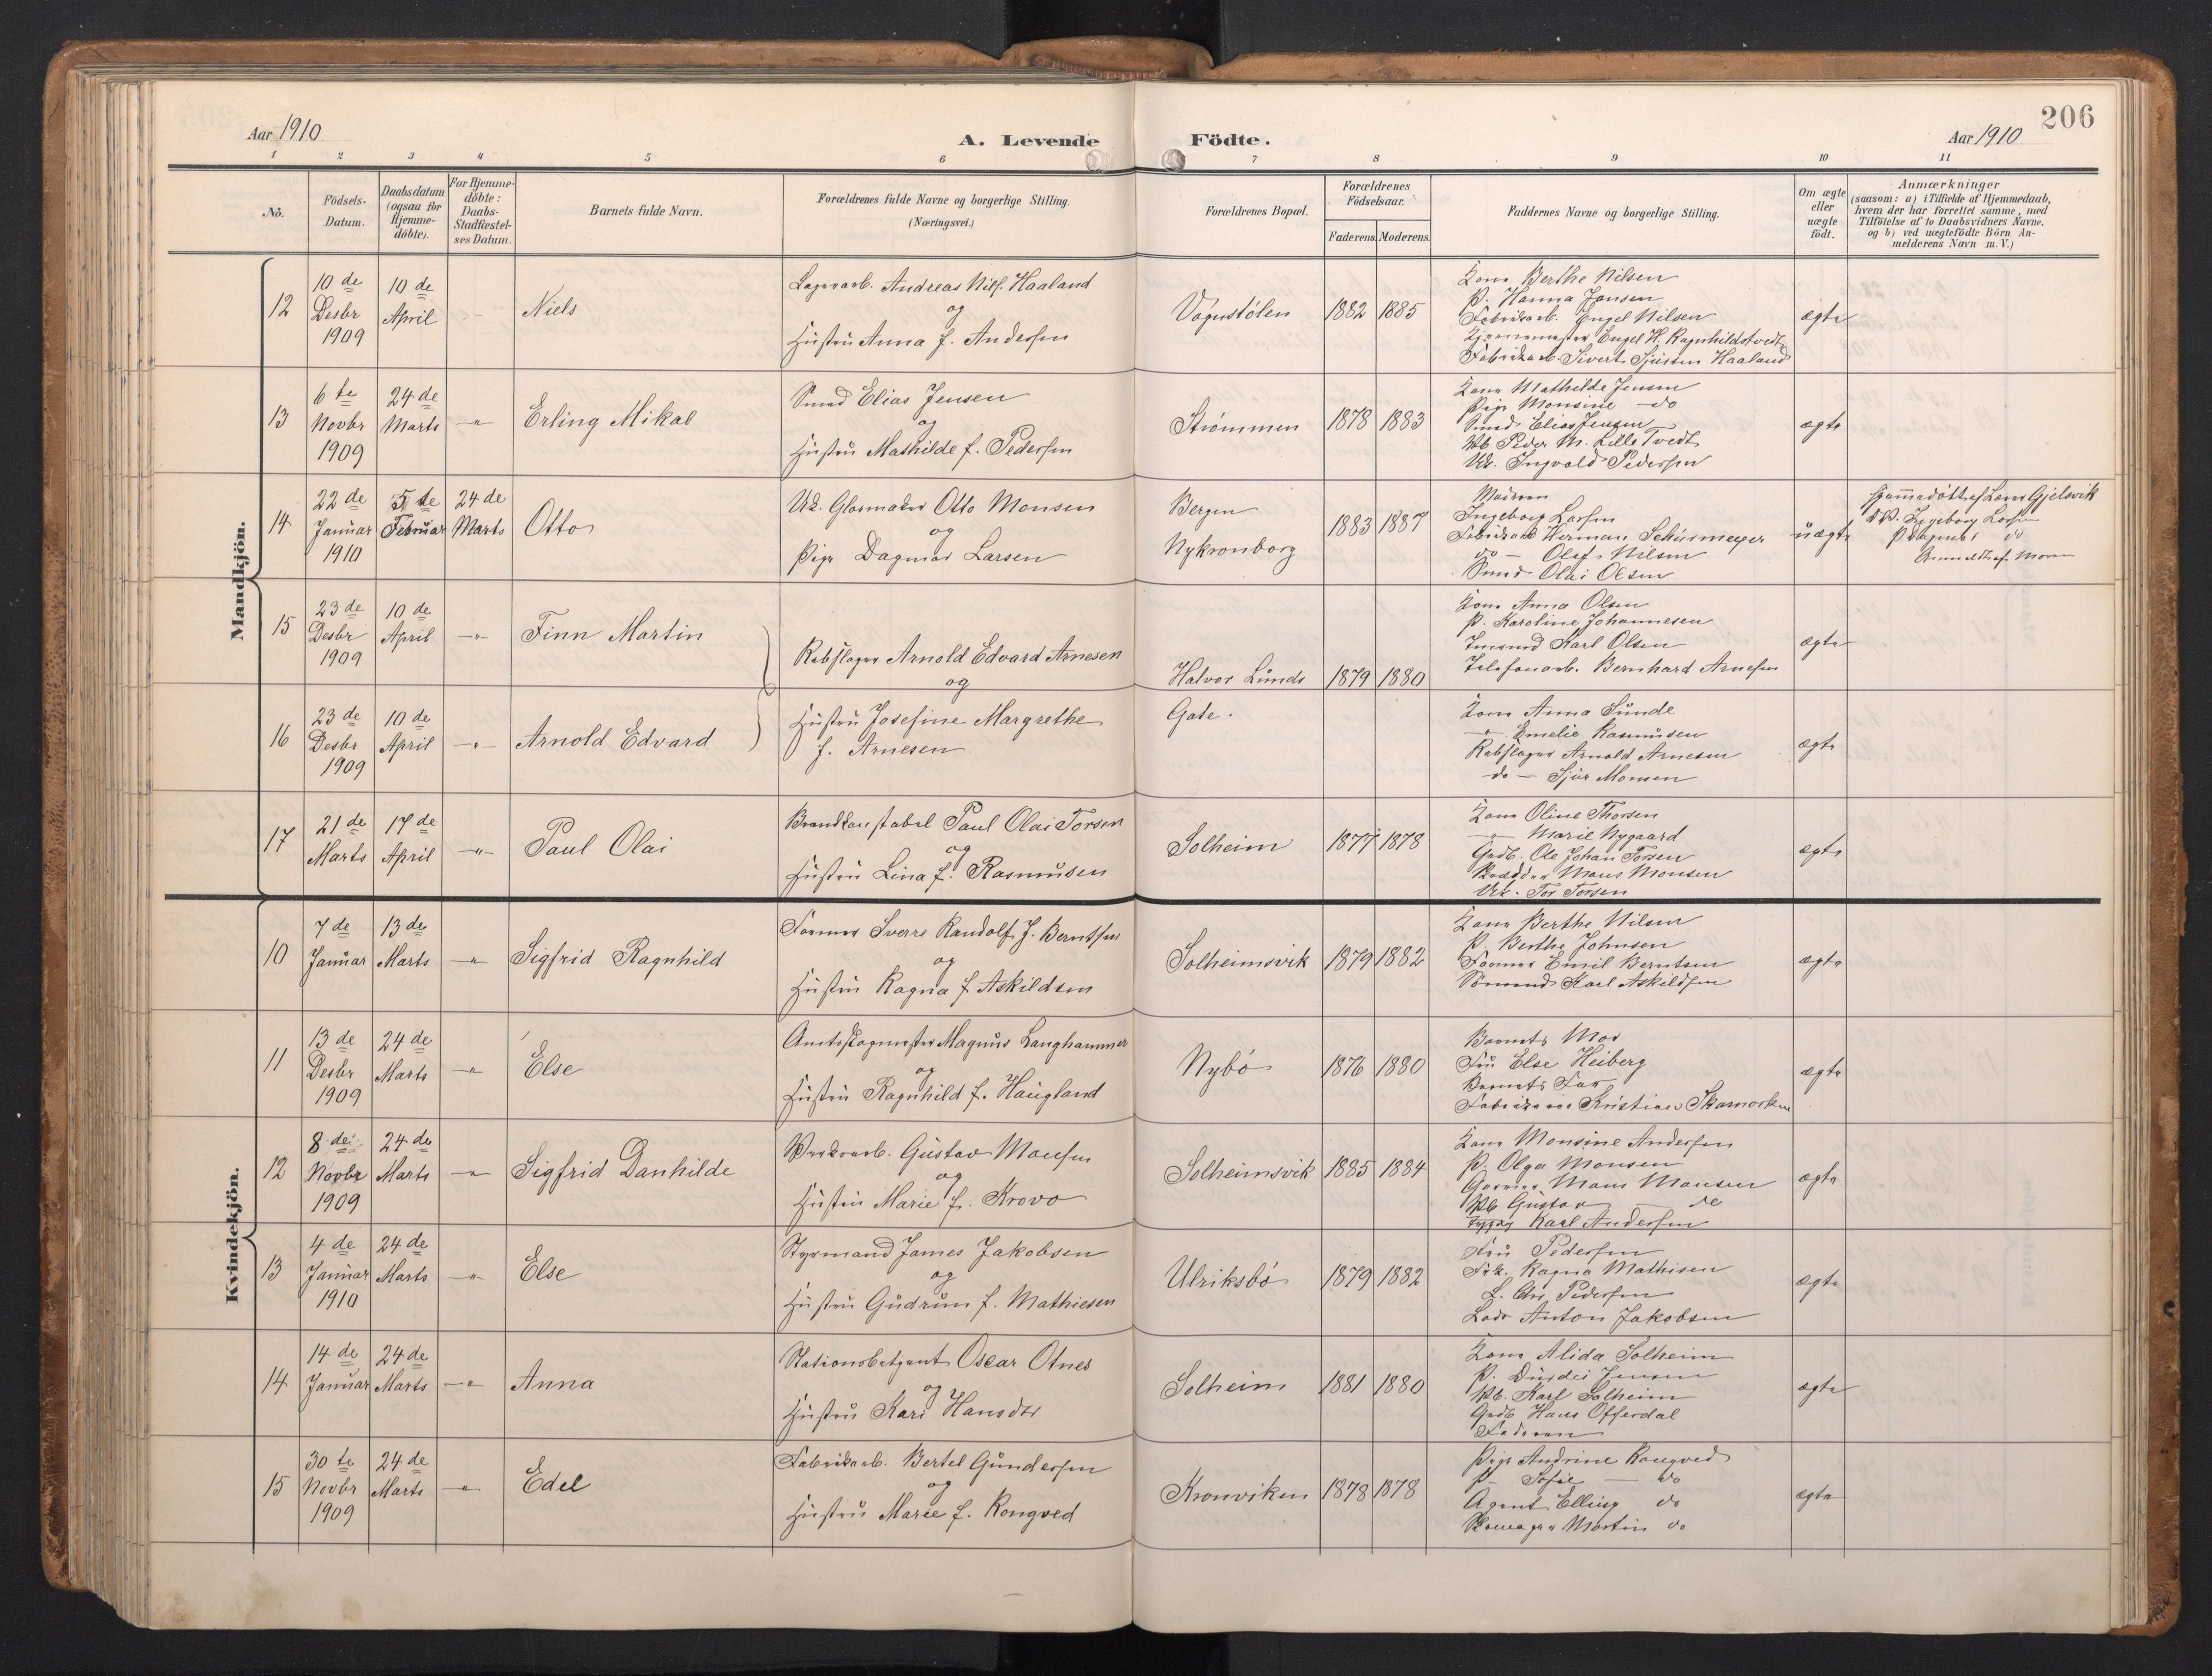 206
Aar 1910
A. Levende Födte.
Aar 1910
1 2 3 4 5 6 7 8 9 10 11
No.
Födsels-
Datum.
Daabsdatum
(ogsaa for
Hjemme-
döbte).
For Hjemme-
döbte:
Daabs-
Stadfæstel-
ses Datum.
Barnets fulde Navn.
Forældrenes fulde Navne og borgerlige Stilling.
(Næringsvei.)
Forældrenes Bopæl.
Forældrenes
Födselsaar.
Faderens. Moderens.
Faddernes Navne og borgerlige Stilling.
Om ægte
eller
uægte
födt.
Anmærkninger
(saasom: a) i Tilfælde af Hjemmedaab,
hvem der har forrettet samme, med
Tilföielse af to Daabsvidners Navne.
og b) ved uægtefödte Börn An-
melderens Navn m. V.)
Mandkjön.
12
10 de
Desbr
1909
10 de
April
Niels
Andreas Nils. Haaland
og
Hustru Anna f. Andersen
Vognstølen
1882 1885
Kone Berthe Nilsen
P. Hanna Jansen
Fabrikarb. Engel Nilsen
Engel H. Ragnhildstvedt
Fabrikarb. Sivert Sjursen Haaland
ægte
13
6 te
Novbr
1909
24 de
Marts
-"-
Erling Mikal
Smed Elias Jensen
og
Hustru Mathilde f. Pedersen
Strømmen
1878 1883
Kone Mathilde Jensen
Pige Monsine - do
Smed Elias Jensen
Peder M. Lille Tvedt
Uk. Ingvald Pedersen
ægte
14
22 de
Januar
1910
5 te
Februar
24 de
Marts
Otto
Uk. Glasmaker Otto Monsen
og
Pige Dagmar Larsen
Bergen
Nykronborg
1883 1887
Moderen
Ingeborg Larsen
Fabrikarb Herman Schusmeyer
do - Olaf Nilsen
Smed Olai Olsen
uægte
Hjemmedøbt af Lars Gjelsvik
Ingeborg Larsen
do
Anmeldt af Moren
15
23 de
Desbr
1909
10 de
April
-"-
Finn Martin
Rebslager Arnold Edvard Arnesen
og
Hustru Josefine Margrethe
f. Arnesen
Halvor Lunds
Gate.
1879 1880
Kone Anna Olsen
P. Karoline Johannesen
Karl Olsen
Telefonarb. Bernhard Arnesen
ægte
16
23 de
Desbr
1909
10 de
April
-"-
Arnold Edvard
Kone Anna Sunde
-"- Emelie Rasmussen
Rebslager Arnold Arnesen
do - Sjur Monsen
ægte
17
21 de
Marts
17 de
April
-"-
Paul Olai
Brandkonstabel Paul Olai Torsen
og
Hustru Lina f. Rasmussen
Solheim
1877 1878
Kone Oline Thorsen
-"- Marie Nygaard
Grdb. Ole Johan Torsen
Mons Monsen
Uk. Tor Torsen
ægte
Kvindekjön.
10
7 de
Januar
13 de
Marts
-"-
Sigfrid Ragnhild
Former Sverre Randolf J. Berntsen
og
Hustru Ragna f. Askildsen
Solheimsvik
1879 1882
Kone Berthe Nilsen
P. Berthe Johnsen
Former Emil Berntsen
Sømand Karl Askildsen
ægte
11
13 de
Desbr
1909
24 de
Marts
-"-
Else
Magnus Langhammer
og
Hustru Ragnhild f. Haugland
Nybø
1876 1880
Barnets Mor
Fru Else Heiberg
Barnets Far
Kristian Skamorken
ægte
12
8 de
Novbr
1909
24 de
Marts
-"-
Sigfrid Danhilde
Gustav Monsen
og
Hustru Marie f. Krovo
Solheimsvik
1885 1884
Kone Monsine Andersen
P. Olga Monsen
Mons Monsen
Gustav do
Karl Andersen
ægte
13
4 de
Januar
1910
24 de
Marts
-"-
Else
Styrmand James Jakobsen
og
Hustru Gudrun f. Mathiesen
Ulriksbø
1879 1882
Fru Pedersen
Frk. Ragna Mathisen
Pedersen
Lods Anton Jakobsen
ægte
14
14 de
Januar
24 de
Marts
-"-
Anna
Stationsbetjent Oscar Otnes
og
Hustru Kari Hansdtr
Solheim
1881 1880
Kone Alida Solheim
P. Jensen
Karl Solheim
Grdb. Hans Offerdal
Faderen
ægte
15
30 te
Novbr
1909
24 de
Marts
-"-
Edel
Fabrikarb. Bertel Gundersen
og
Hustru Marie f. Rongved
Kronviken
1878 1878
Pige Andrine Rongved
P. Sofie - do
Agent Elling do
Skomager Martin do
ægte